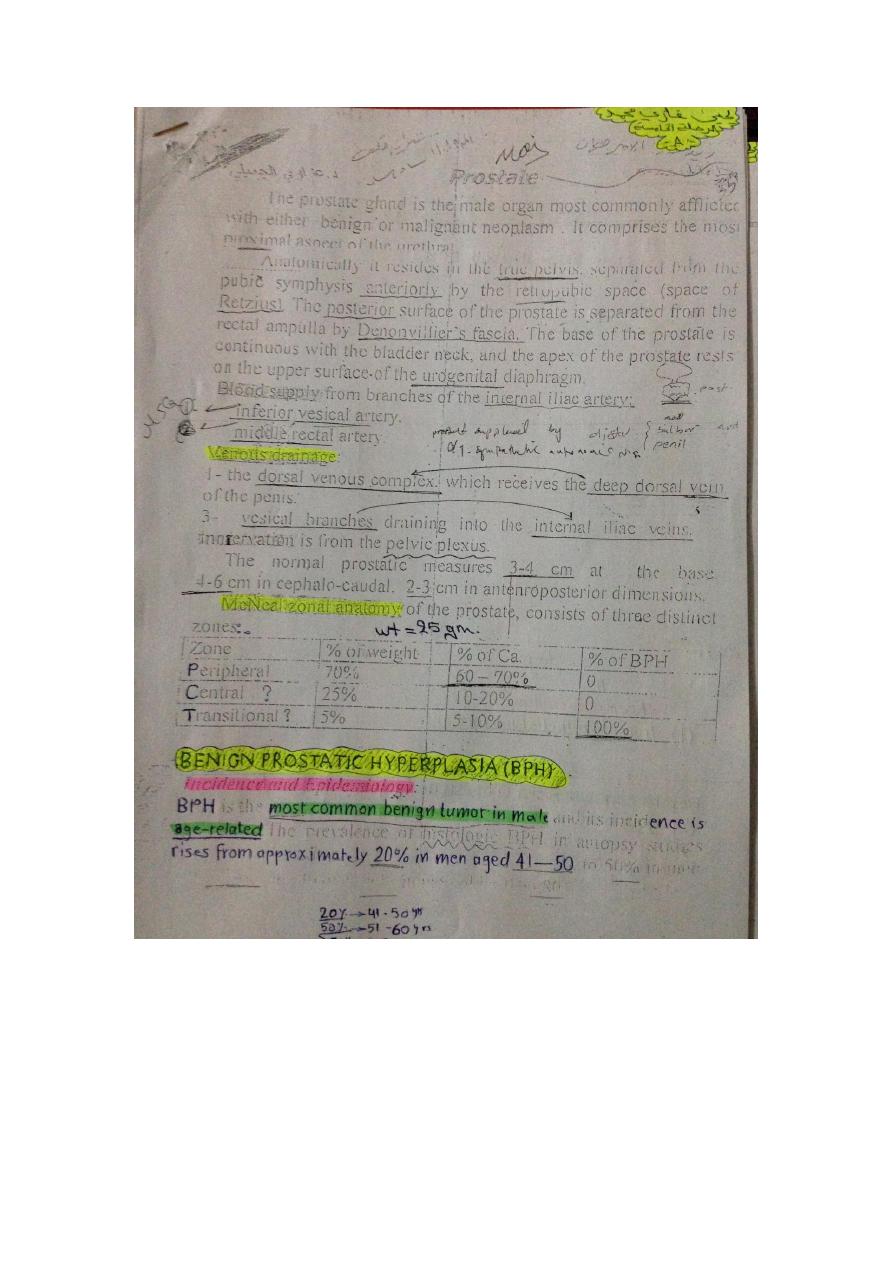 Prostate
The prostate gland is the male organ most commonly afflicted
with either benign or malignant neoplasm . It comprises the most
proximal aspect of the urethra.
Anatomically it resides in the true pelvis, separated from the
pubic symphysis anteriorly by the retropubic space (space of
Retzius). The posterior surface of the prostate is separated from the
rectal ampulla by Denonvillier's fascia. The base of the prostate is
continuous with the bladder neck, and the apex of the prostate rests
on the upper surface of the urogenital diaphragm.
Blood supply from branches of the internal iliac artery:
inferior vesical artery.
middle rectal artery.
Venous drainage:
1- the dorsal venous complex. which receives the deep dorsal vein
of the penis.
3- vesical branches draining into the internal iliac veins.
Innervation is from the pelvic plexus.
The normal prostatic measures 3-4 cm at the base
4-6 cm in cephalo-caudal. 2-3 cm in anteroposterior dimensions.
McNeal zonal anatomy of the prostate, consists of three distinct
zones:
wt = 25 gm.
Zone % of weight % of Ca. % of BPH
Peripheral 70% 60 – 70% 0
Central ? 25% 10-20% 0
Transitional ? 5% 5-10% 100%
BENIGN PROSTATIC HYPERPLASIA (BPH)
Incidence and Epidemiology:
BPH is the most common benign tumor in male and its incidence is
age-related The prevalence of histologic BPH in autopsy studies
rises from approximately 20% in men aged 41—50 to 50% in
20% → 41 - 50 yrs
50% → 51 - 60 yrs